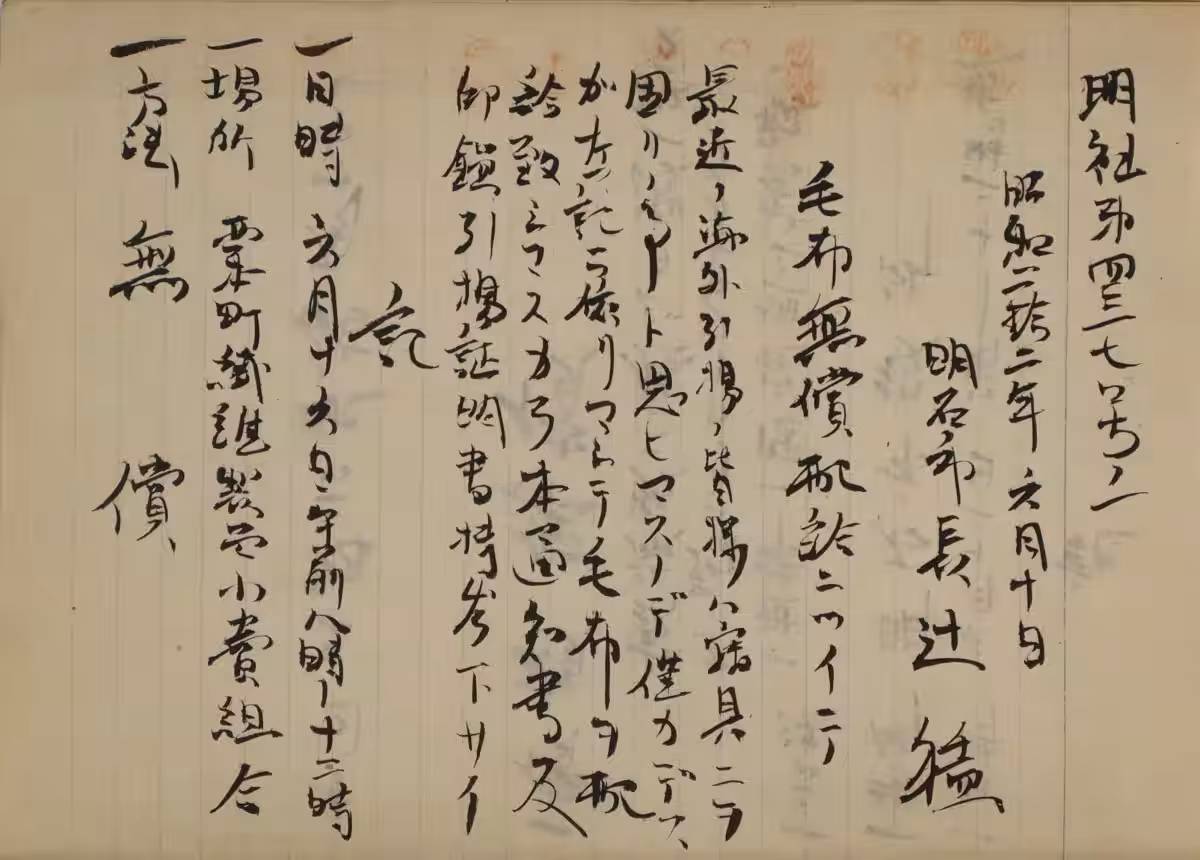 明社第四三七号ノ一
昭和二拾二年六月十日
明石市長 辻 猛
毛布無償配給ニツイテ
最近ノ海外引揚ノ皆様ハ寝具ニテ
困リノ事ト思ヒマスノデ僅カデスガ
左記ニ依リマシテ毛布ヲ配
給致シマスカラ本通知書及
印鑑引揚証明書持参下サイ
記
一日時 六月十六日午前八時ノ十二時
一場所 東本町繊維製品小賣組合
一方法 無償